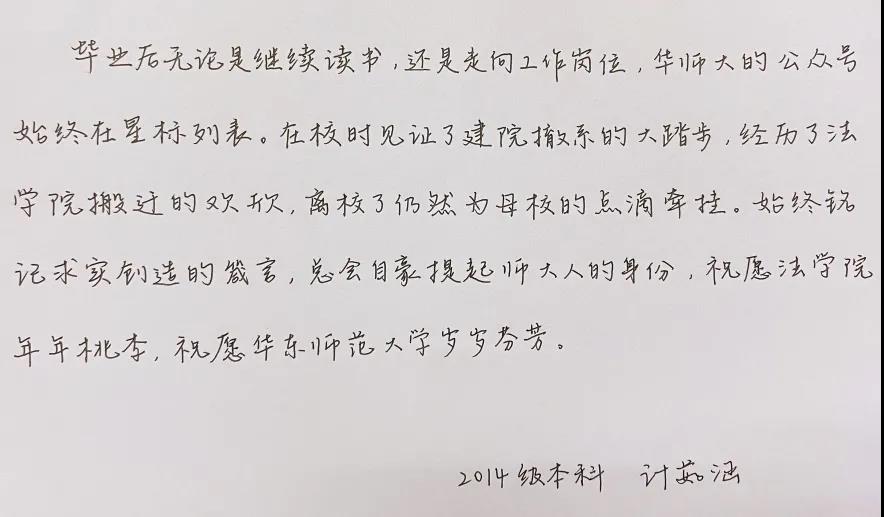 毕业后无论是继续读书,还是走向工作岗位,华师大的公众号
始终在星标列表。在校时见证了建院撤系的大踏步,经历了法
学院搬迁的欢欣,离校了仍然为母校的点滴牵挂。始终铭
记求实创造的箴言,总会自豪提起师大人的身份,祝愿法学院
年年桃李,祝愿华东师范大学岁岁芬芳。
2014级本科 计茹涵